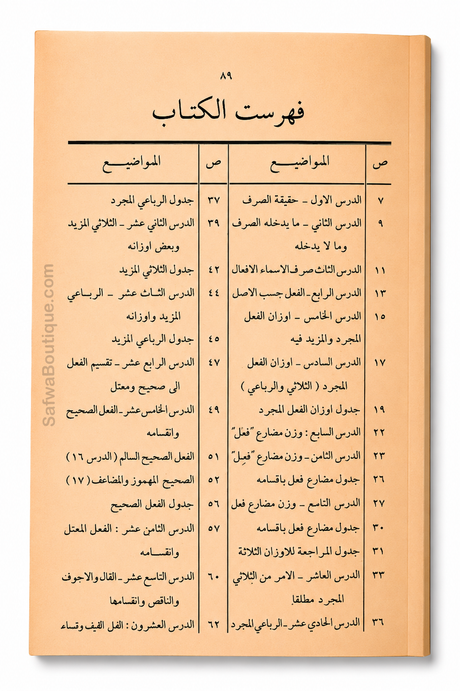 ٨٩
فهرست الكتاب
ص المواضيع
٧ الدرس الاول – حقيقة الصرف
٩ الدرس الثاني – ما يدخله الصرف
وما لا يدخله
١١ الدرس الثالث صرف الاسماء الافعال
١٣ الدرس الرابع – الفعل حسب الاصل
١٥ الدرس الخامس – اوزان الفعل
المجرد والمزيد فيه
١٧ الدرس السادس – اوزان الفعل
المجرد ( الثلاثي والرباعي )
١٩ جدول اوزان الفعل المجرد
٢٢ الدرس السابع : وزن مضارع "فعَل"
٢٣ الدرس الثامن – وزن مضارع "فعِل"
٢٦ جدول مضارع فعل باقسامه
٢٧ الدرس التاسع – وزن مضارع فعل
٣٠ جدول مضارع فعل باقسامه
٣١ جدول المراجعة للاوزان الثلاثة
٣٣ الدرس العاشر – الامر من الثلاثي
المجرد مطلقا
٣٦ الدرس الحادي عشر – الرباعي المجرد
ص المواضيع
٣٧ جدول الرباعي المجرد
٣٩ الدرس الثاني عشر – الثلاثي المزيد
وبعض اوزانه
٤٢ جدول الثلاثي المزيد
٤٤ الدرس الثالث عشر – الرباعي
المزيد واوزانه
٤٥ جدول الرباعي المزيد
٤٧ الدرس الرابع عشر – تقسيم الفعل
الى صحيح ومعتل
٤٩ الدرس الخامس عشر – الفعل الصحيح
وانقسامه
٥١ الفعل الصحيح السالم ( الدرس ١٦ )
٥٢ الصحيح المهموز والمضاعف ( ١٧ )
٥٦ جدول الفعل الصحيح
٥٧ الدرس الثامن عشر : الفعل المعتل
وانقسامه
٦٠ الدرس التاسع عشر – القال والاجوف
والناقص وانقسامها
٦٢ الدرس العشرون : الفل القيف وتساء
SafwaBoutique.com